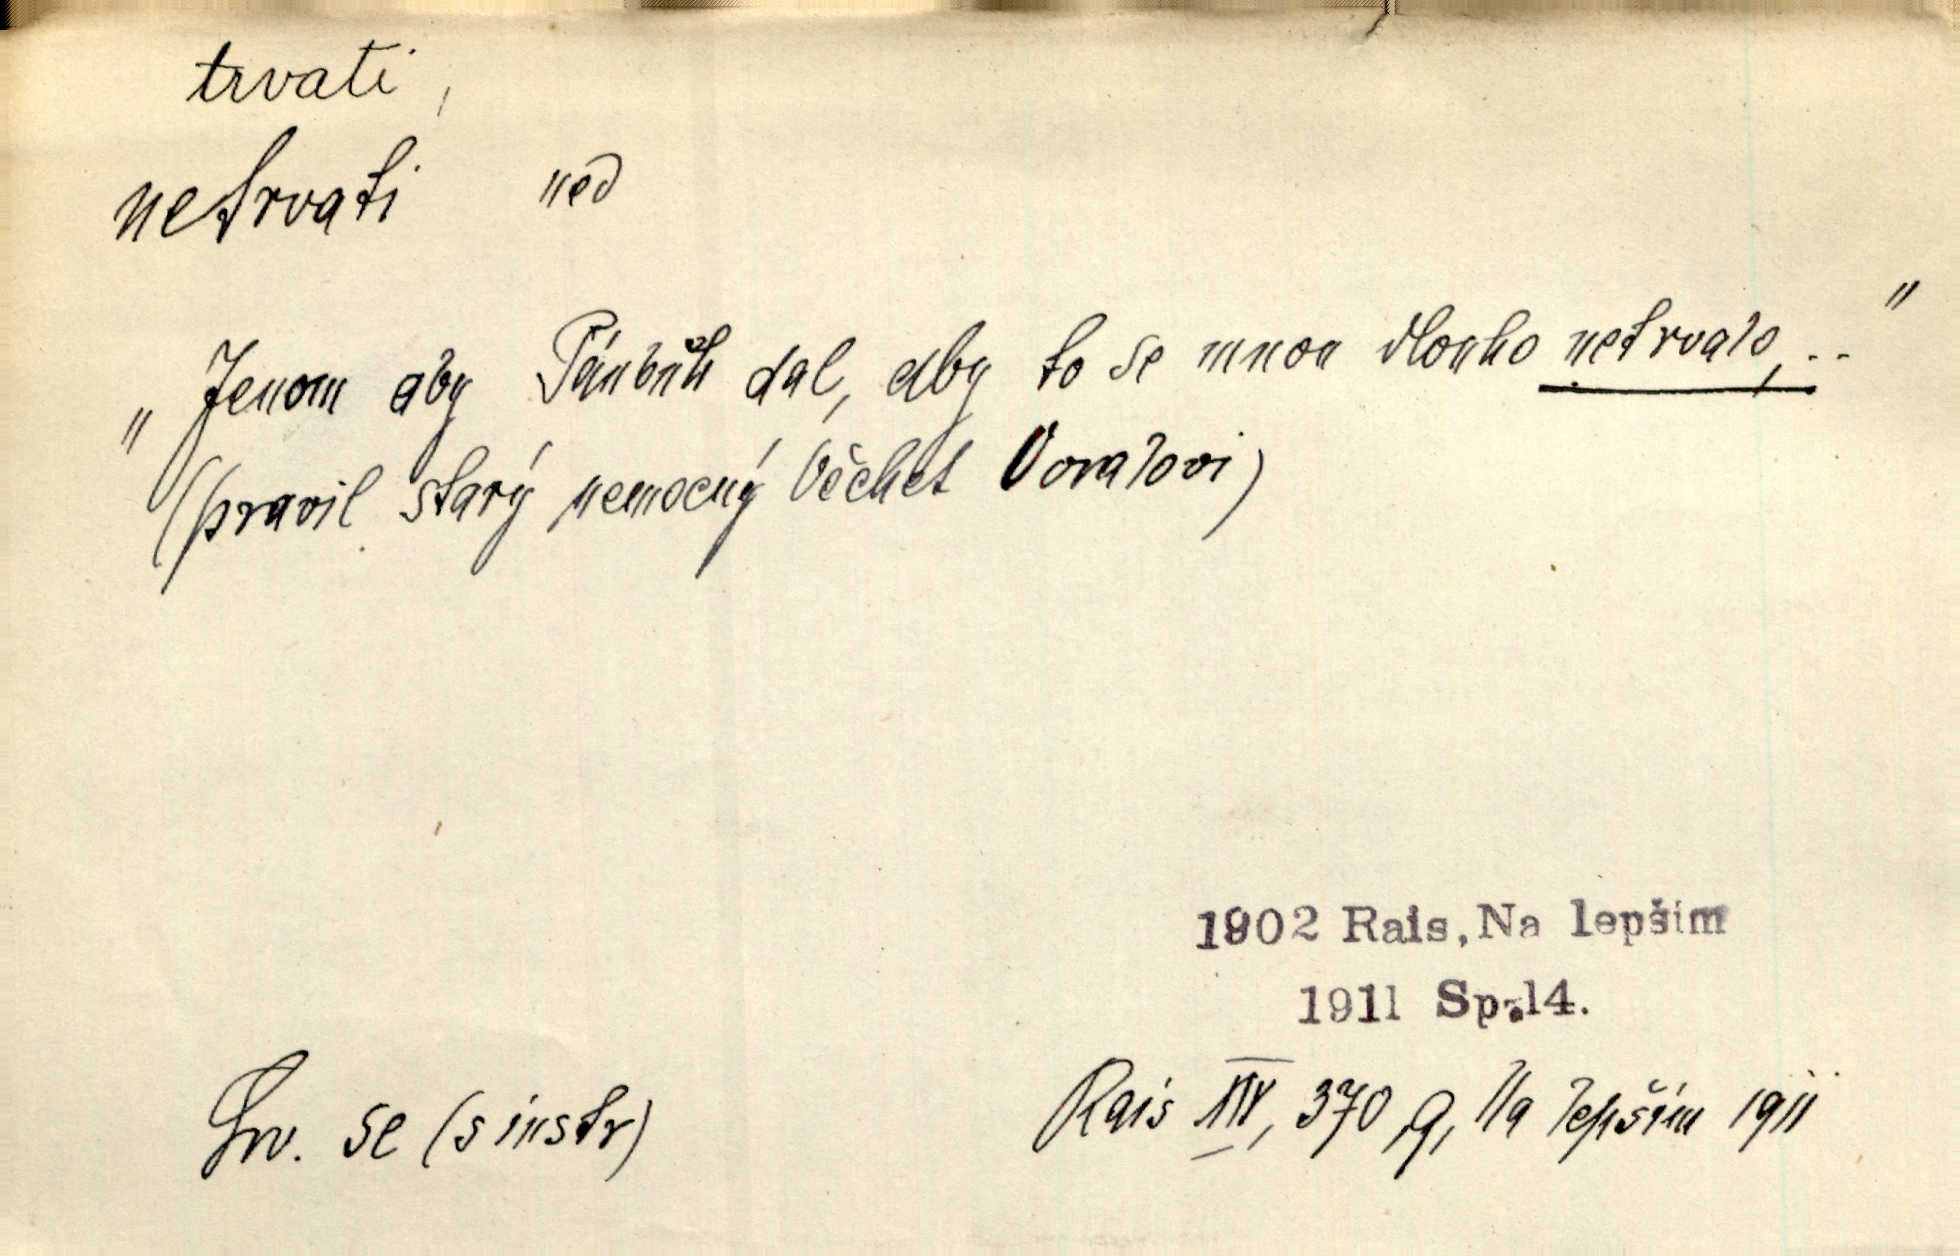 trvati,
netrvati ned
„Jenom aby Pánbůh dal, aby to se mnou dlouho netrvalo,.."
(pravil starý nemocný Věchet Voralovi)
1902 Rais, Na lepším
1911 Sp.14.
Trv. se (s instr)
Rais XIV, 370, 9, Na lepším 1911